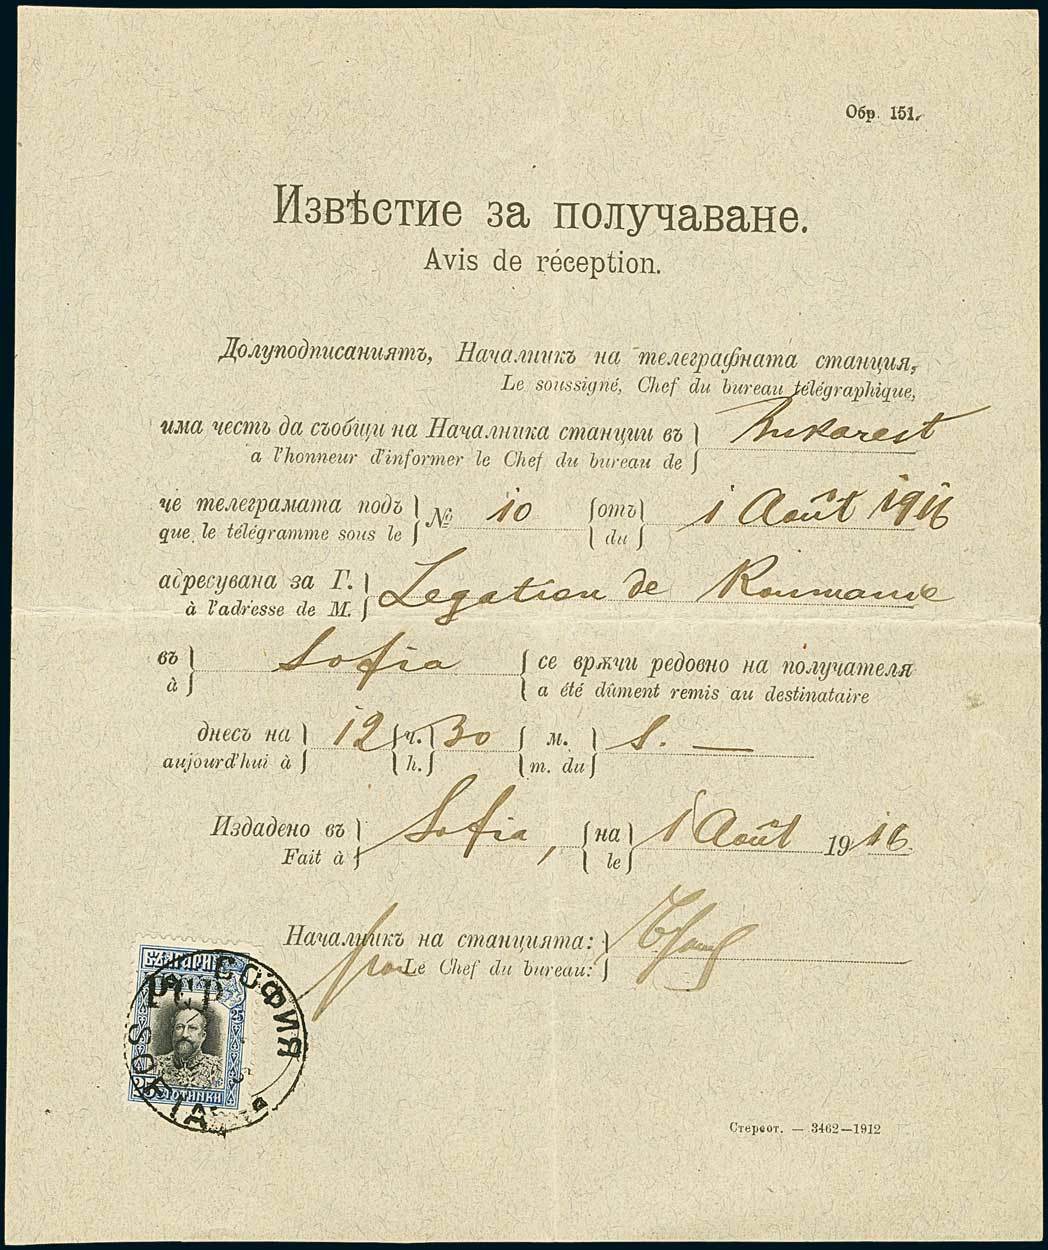 Обр. 151.
Извѣстие за получаване.
Avis de réception.
Долуподписаниятъ, Началникъ на телеграфната станция,
Le soussigné, Chef du bureau télégraphique,
има честь да съобщи на Началника станции въ Bukarest
a l'honneur d'informer le Chef du bureau de
че телеграмата подъ № 10 отъ 1 Août 1916
que le télégramme sous le du
адресувана за Г. Legation de Roumanie
à l'adresse de M.
въ Sofia се врѫчи редовно на получателя
à a été dûment remis au destinataire
днесъ на 12 ч. 30 м. S. —
aujourd'hui à h. m. du
Издадено въ Sofia, на 1 Août 1916
Fait à le
Началникъ на станцията:
Le Chef du bureau:
СОФИЯ
SOFIA
25
Стереот. — 3462—1912